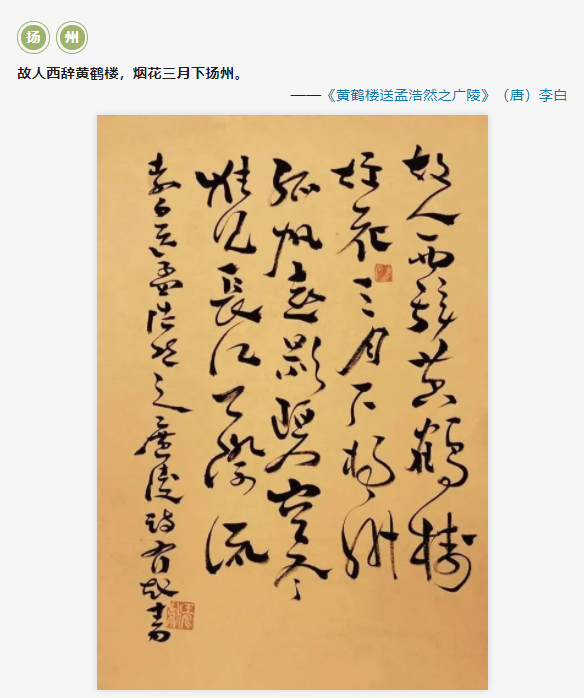 扬州
故人西辞黄鹤楼，烟花三月下扬州。
——《黄鹤楼送孟浩然之广陵》（唐）李白
故人西辞黄鹤楼
烟花三月下扬州
孤帆远影碧空尽
惟见長江天際流
李白送孟浩然之廣陵诗 书